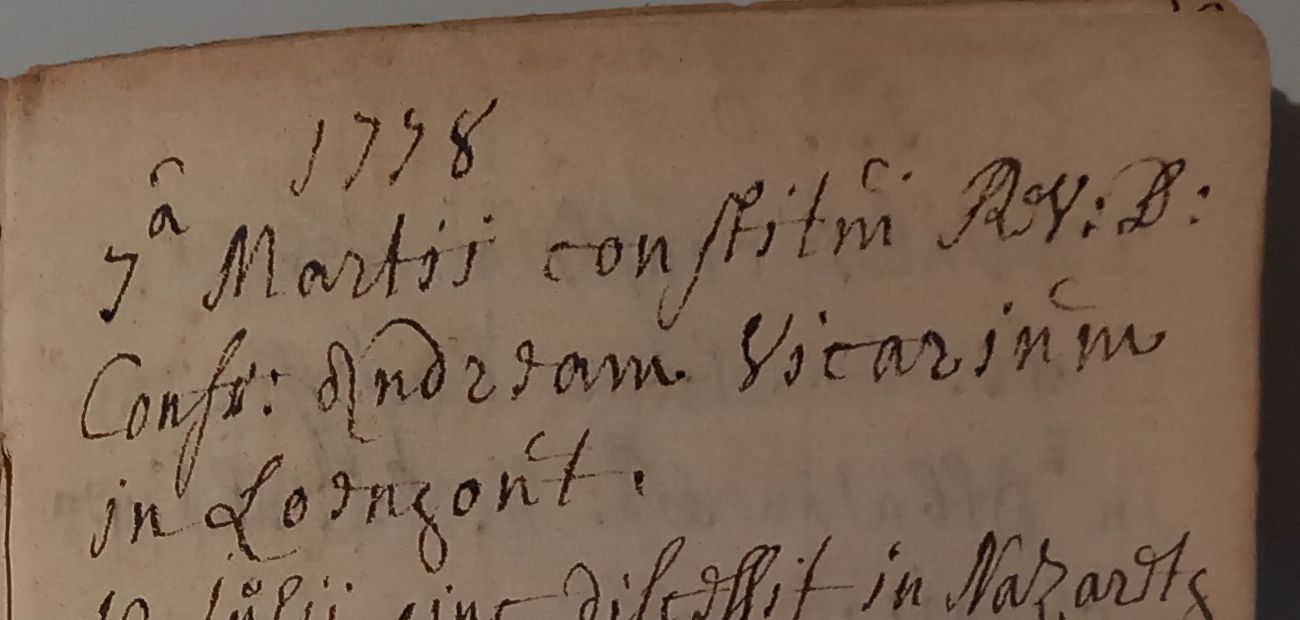 1778
7â Martii constitui RV: D:
Confr: Andream Vicarium
in Loengout.
Julii hinc discessit in Nazareth